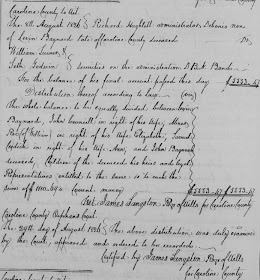 Caroline County to Wit
The 9th August 1836 } Richard Hughlett administrator, Debonis non
of Levin Baynard late of Caroline County deceased Dr,
William Turner, &
Seth Godwin } securities on the administration D.B.N. Bond
For the balance of his final account passed this day $3333..67
Distribution thereof according to law (on)
The whole balance to be equally divided between
Baynard, John Connelly in right of his wife
in right of his wife Elizabeth, Samuel
in right of his wife Ann, and John Baynard
deceased, Children of the deceased his heirs and legal
Representatives entitled to the same; is to each the
sum of current money $3333..67 $3333..67
Test. James Sangston Reg of Wills for Caroline County
Caroline County Orphans Court,
The 29th day of August 1836 } The above distribution was duly examined
by the Court, approved and ordered to be recorded
Certified by James Sangston Reg of Wills
for Caroline County